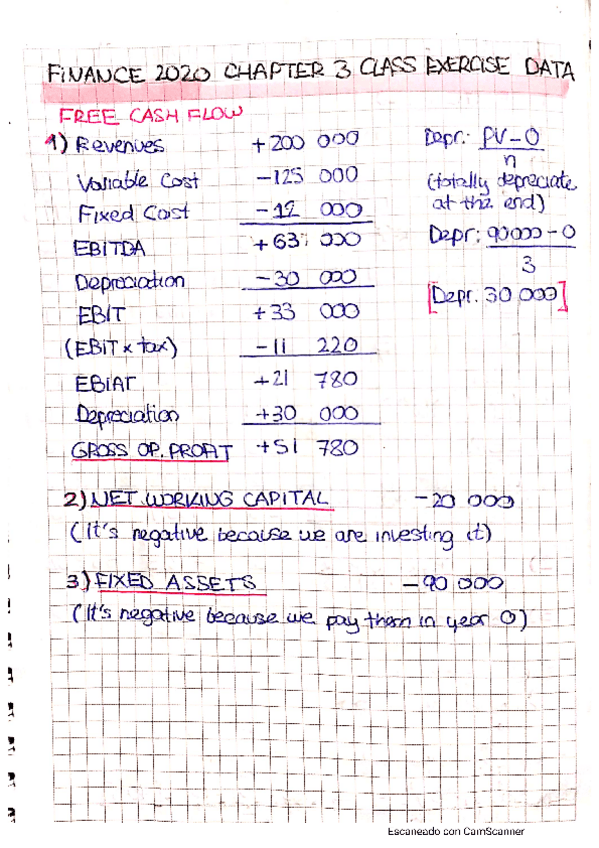 FINANCE 2020 CHAPTER 3 CLASS EXERCISE DATA
FREE CASH FLOW
1) Revenues +200 000
Variable Cost -125 000
Fixed Cost -12 000
EBITDA +63 000
Depreciation -30 000
EBIT +33 000
(EBIT x tax) -11 220
EBIAT +21 780
Depreciation +30 000
GROSS OP. PROFIT +51 780
Depr: PV-0
n
(totally depreciate
at the end)
Depr: 90000-0
3
[Depr. 30 000]
2) NET WORKING CAPITAL -20 000
(It's negative because we are investing it)
3) FIXED ASSETS -90 000
(It's negative because we pay them in year 0)
Escaneado con CamScanner